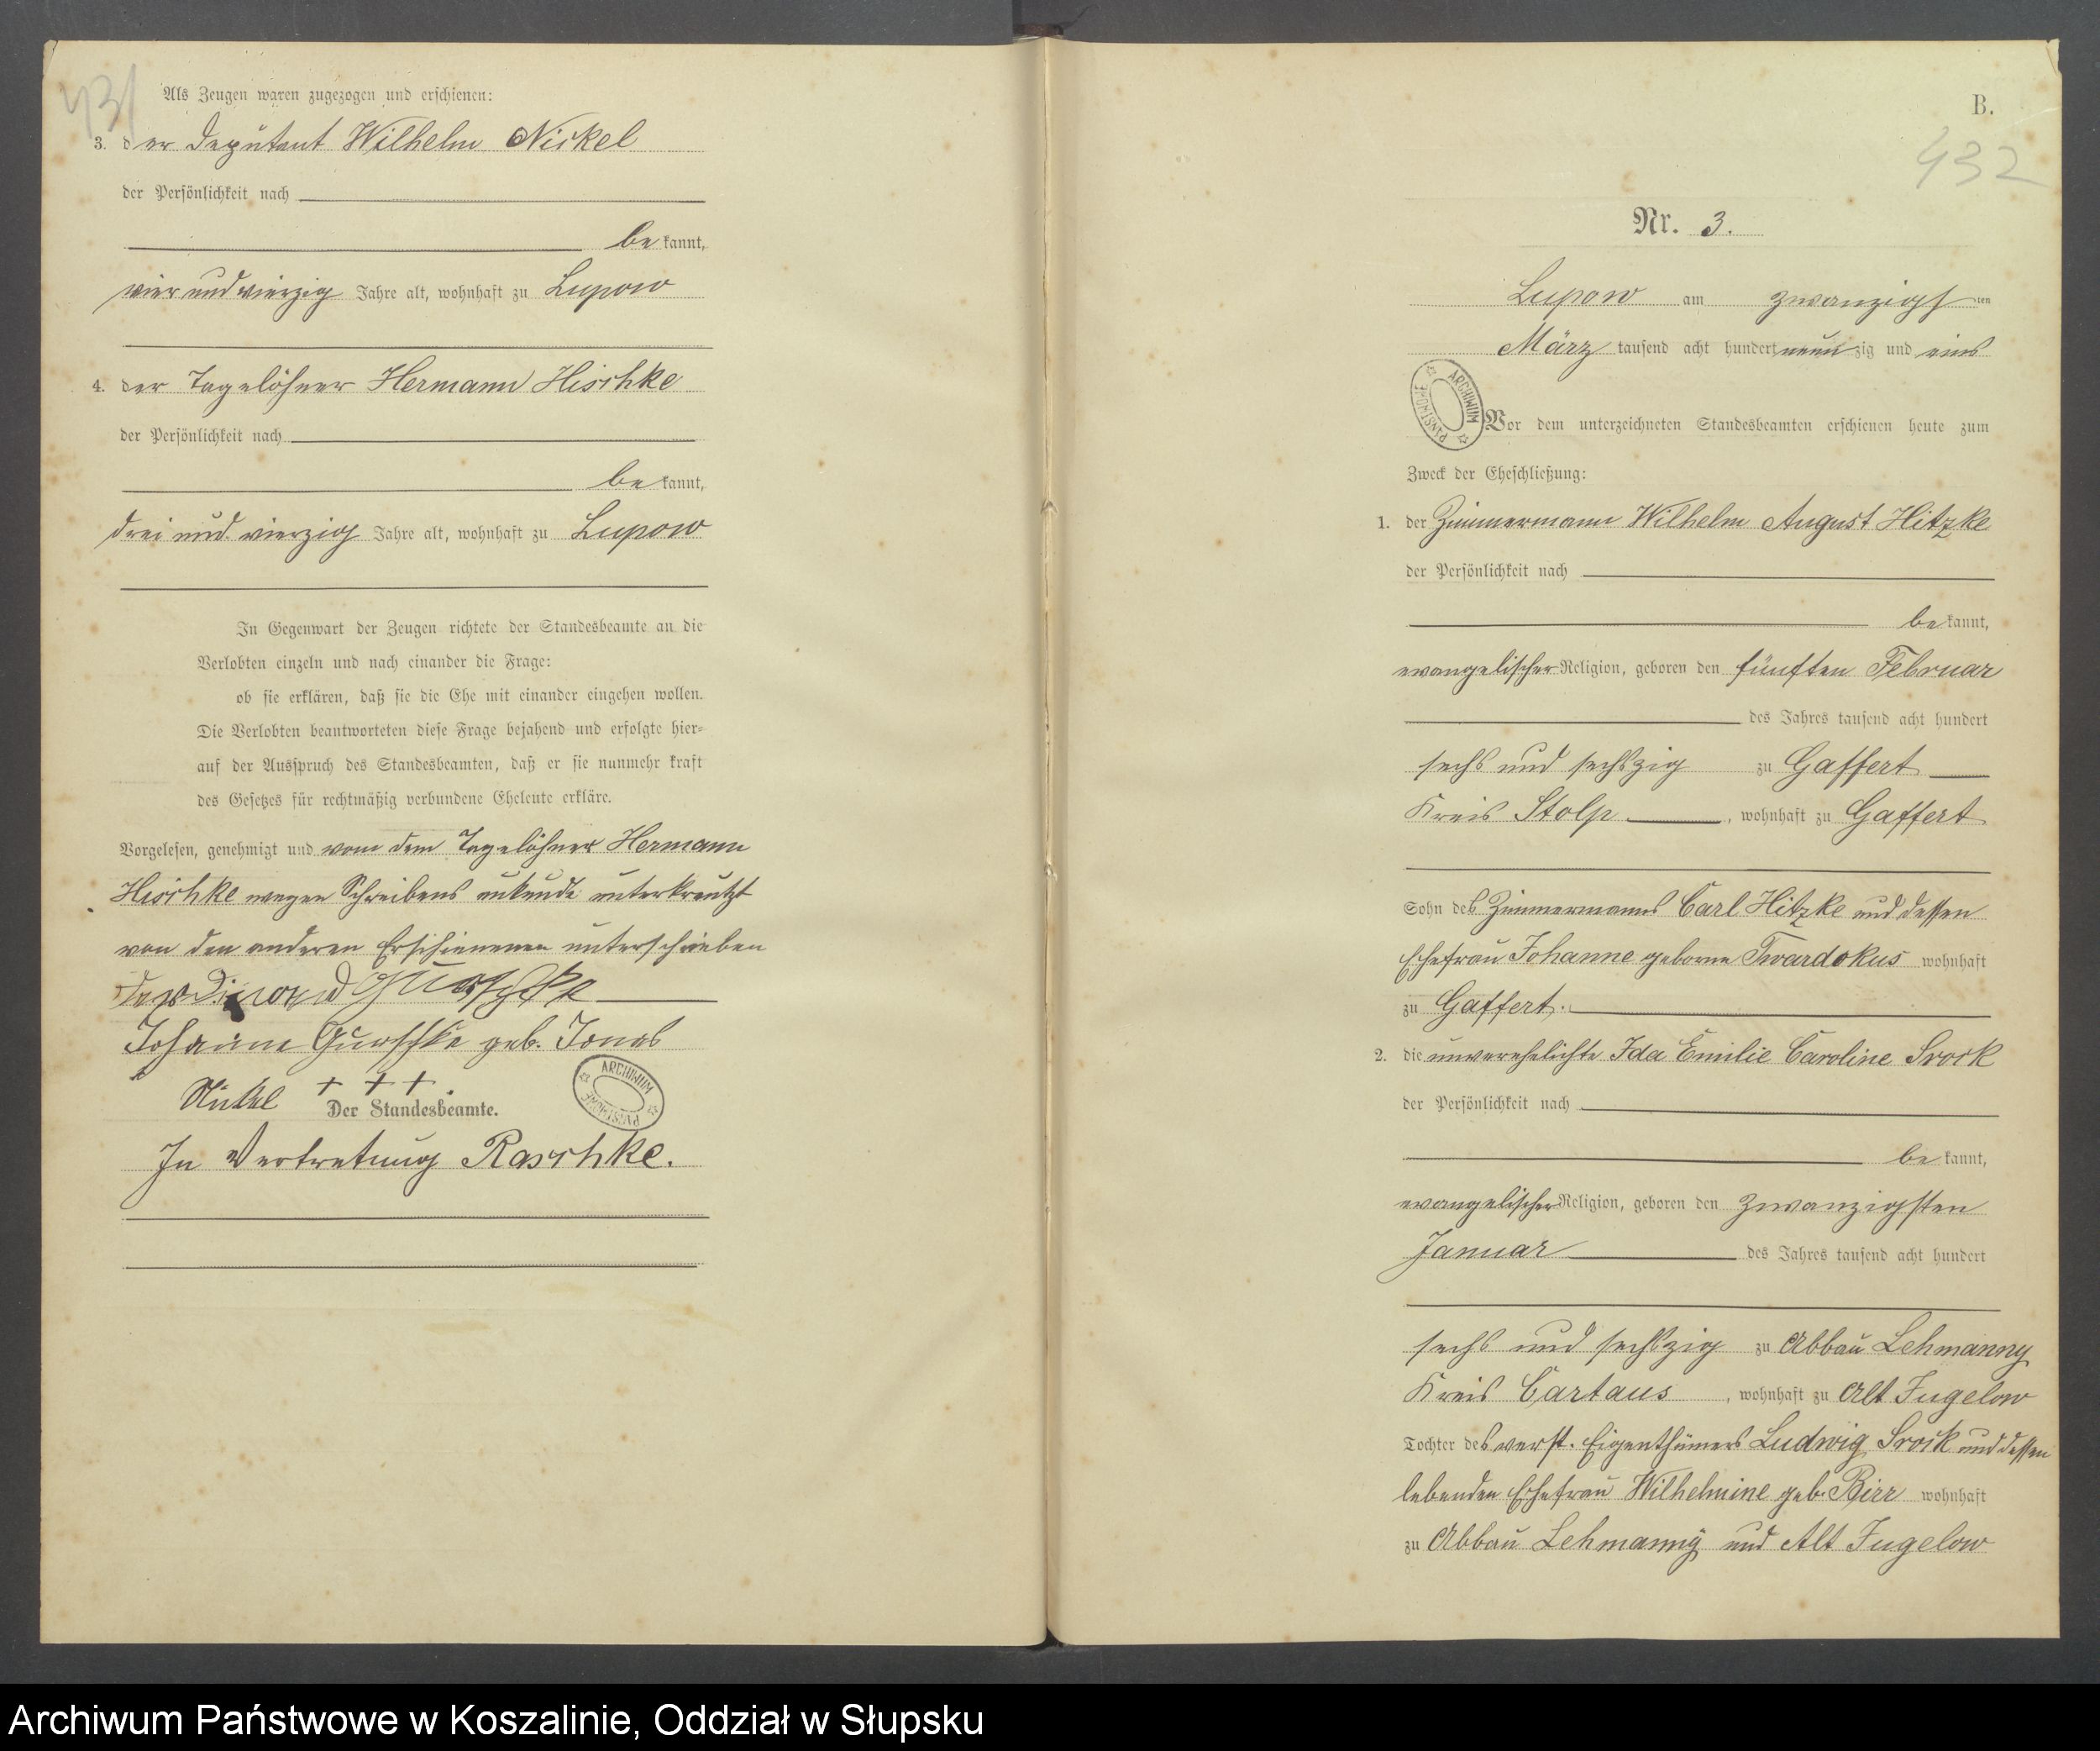 431
Als Zeugen waren zugezogen und erschienen:
3. der Deputant Wilhelm Nickel
der Persönlichkeit nach
bekannt,
vier und vierzig Jahre alt, wohnhaft zu Lupow
4. der Tagelöhner Hermann Hischke
der Persönlichkeit nach
bekannt,
drei und vierzig Jahre alt, wohnhaft zu Lupow
In Gegenwart der Zeugen richtete der Standesbeamte an die
Verlobten einzeln und nach einander die Frage:
ob sie erklären, daß sie die Ehe mit einander eingehen wollen.
Die Verlobten beantworteten diese Frage bejahend und erfolgte hier=
auf der Ausspruch des Standesbeamten, daß er sie nunmehr kraft
des Gesetzes für rechtmäßig verbundene Eheleute erkläre.
Vorgelesen, genehmigt und von dem Tagelöhner Hermann
Hischke wegen Schreibens unkunde unterkreutzt
von den anderen Erschienenen unterschrieben
Gurschke
Johanne Gurschke geb. Jonas
Nickel + + +.
Der Standesbeamte.
In Vertretung Raschke.
ARCHIWUM PAŃSTWOWE
B.
432
Nr. 3.
Lupow am zwanzigsten
März tausend acht hundert neunzig und eins
ARCHIWUM PAŃSTWOWE
Vor dem unterzeichneten Standesbeamten erschienen heute zum
Zweck der Eheschließung:
1. der Zimmermann Wilhelm August Hitzke
der Persönlichkeit nach
bekannt,
evangelischer Religion, geboren den fünften Februar
des Jahres tausend acht hundert
sechs und sechszig zu Gaffert
Kreis Stolp, wohnhaft zu Gaffert
Sohn des Zimmermanns Carl Hitzke und dessen
Ehefrau Johanne geborne Twardokus wohnhaft
zu Gaffert.
2. die unverehelichte Ida Emilie Caroline Srock
der Persönlichkeit nach
bekannt,
evangelischer Religion, geboren den zwanzigsten
Januar des Jahres tausend acht hundert
sechs und sechszig zu Abbau Lehmanny
Kreis Cartaus, wohnhaft zu Alt Jugelow
Tochter des verst. Eigenthümers Ludwig Srock und dessen
lebenden Ehefrau Wilhelmine geb. Birr wohnhaft
zu Abbau Lehmanny und Alt Jugelow
Archiwum Państwowe w Koszalinie, Oddział w Słupsku